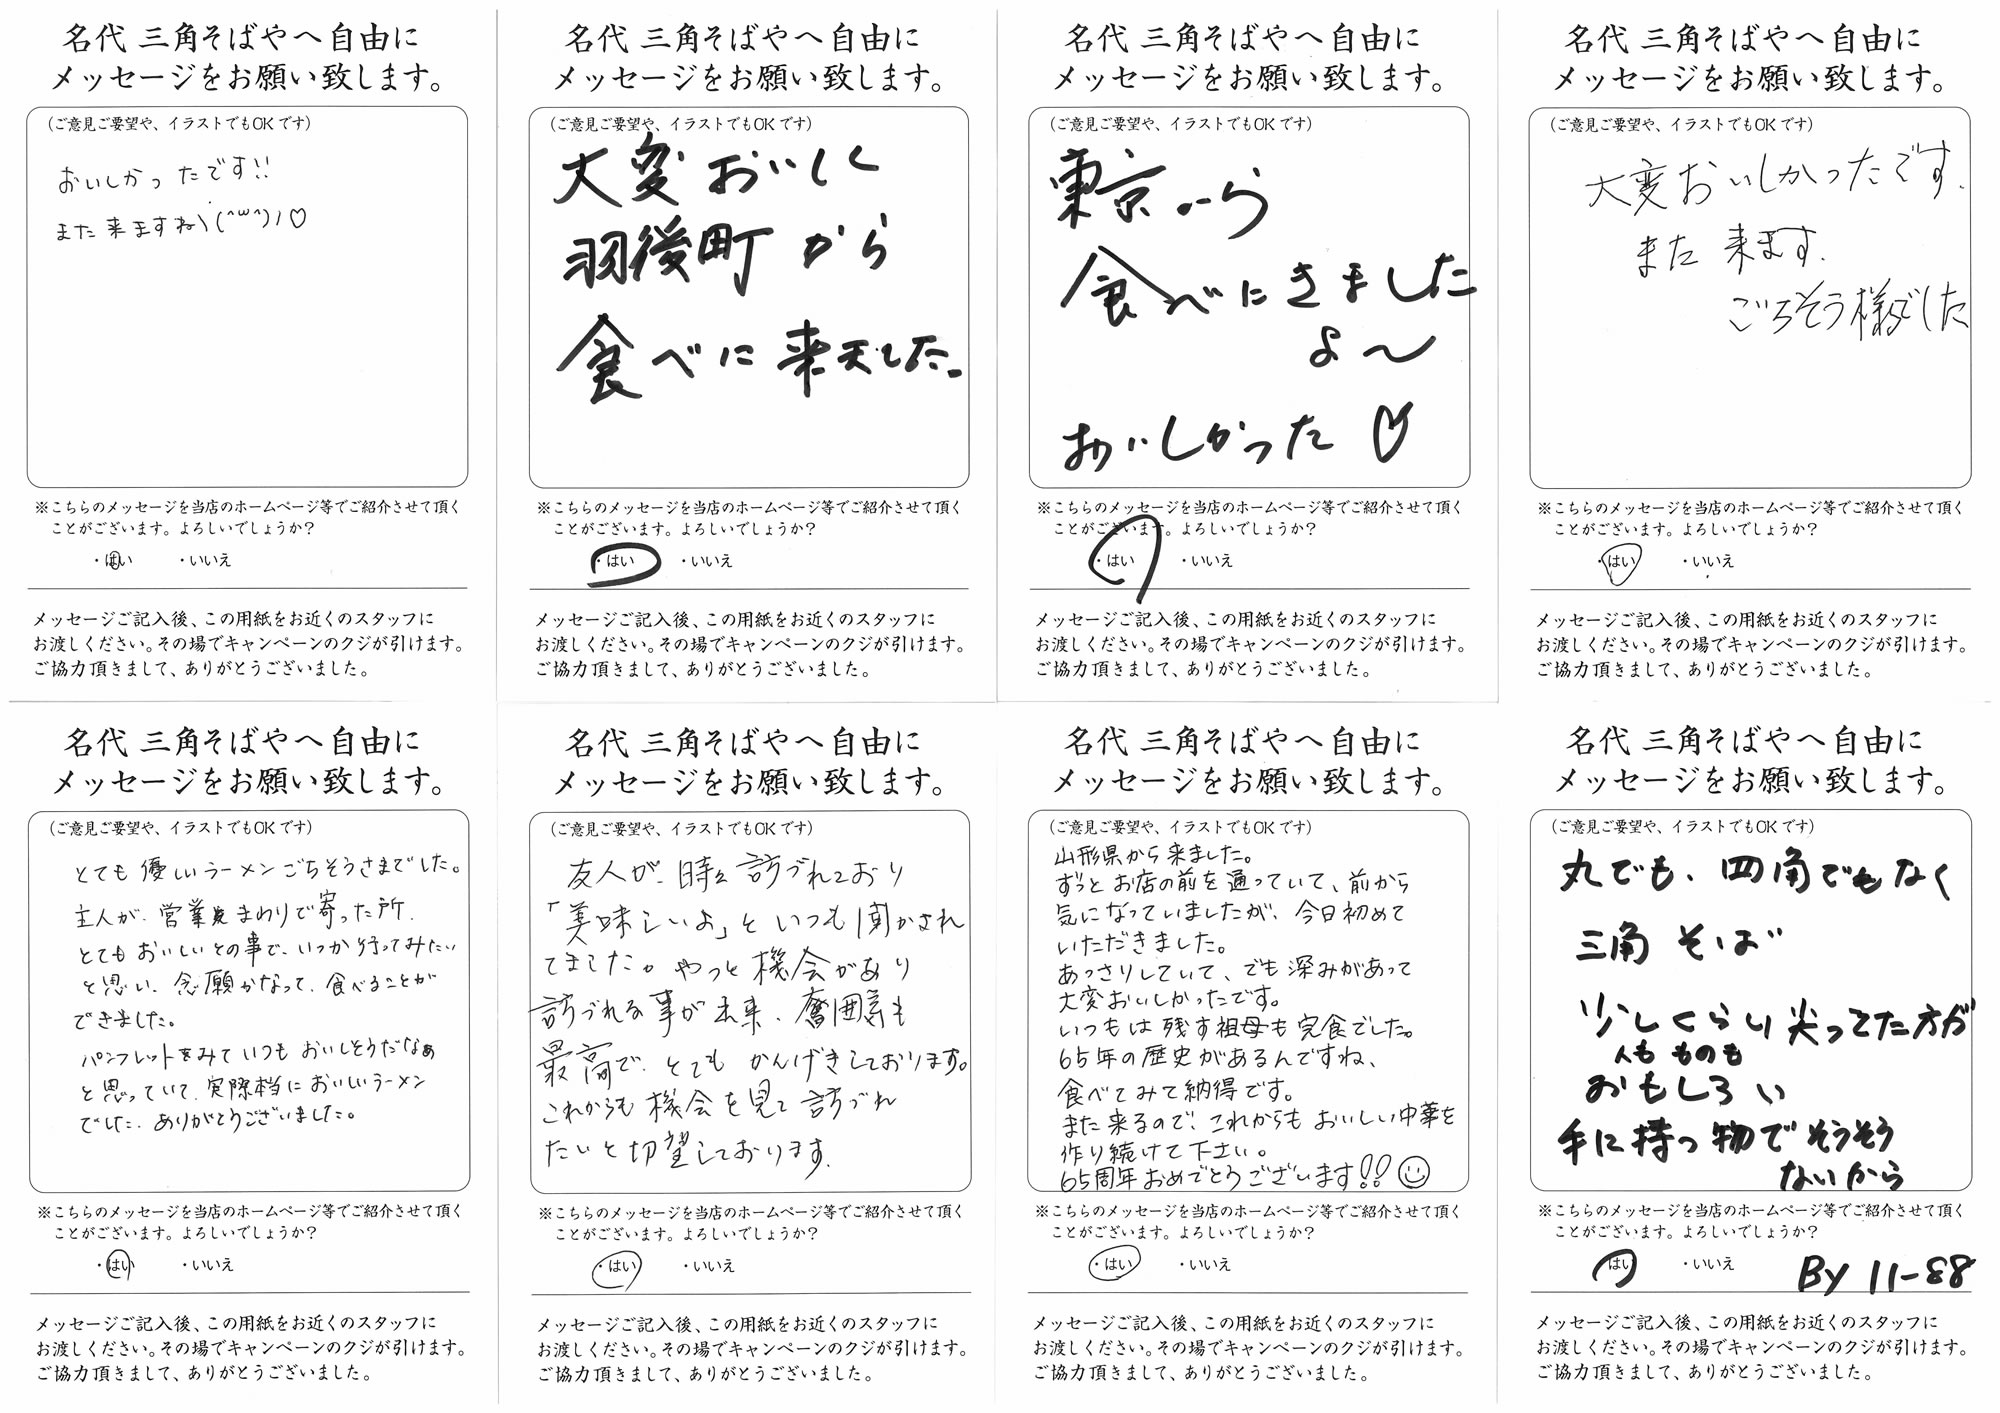 名代 三角そばやへ自由に
メッセージをお願い致します。
(ご意見ご要望や、イラストでもOKです)
おいしかったです!!
また来ますね\(^ω^)/♡
※こちらのメッセージを当店のホームページ等でご紹介させて頂く
ことがございます。よろしいでしょうか?
・はい ・いいえ
メッセージご記入後、この用紙をお近くのスタッフに
お渡しください。その場でキャンペーンのクジが引けます。
ご協力頂きまして、ありがとうございました。
名代 三角そばやへ自由に
メッセージをお願い致します。
(ご意見ご要望や、イラストでもOKです)
大変おいしく
羽後町から
食べに来ました。
※こちらのメッセージを当店のホームページ等でご紹介させて頂く
ことがございます。よろしいでしょうか?
・はい ・いいえ
メッセージご記入後、この用紙をお近くのスタッフに
お渡しください。その場でキャンペーンのクジが引けます。
ご協力頂きまして、ありがとうございました。
名代 三角そばやへ自由に
メッセージをお願い致します。
(ご意見ご要望や、イラストでもOKです)
東京から
食べにきました
よ〜
おいしかった♡
※こちらのメッセージを当店のホームページ等でご紹介させて頂く
ことがございます。よろしいでしょうか?
・はい ・いいえ
メッセージご記入後、この用紙をお近くのスタッフに
お渡しください。その場でキャンペーンのクジが引けます。
ご協力頂きまして、ありがとうございました。
名代 三角そばやへ自由に
メッセージをお願い致します。
(ご意見ご要望や、イラストでもOKです)
大変おいしかったです.
また 来ます.
ごちそう様でした
※こちらのメッセージを当店のホームページ等でご紹介させて頂く
ことがございます。よろしいでしょうか?
・はい ・いいえ
メッセージご記入後、この用紙をお近くのスタッフに
お渡しください。その場でキャンペーンのクジが引けます。
ご協力頂きまして、ありがとうございました。
名代 三角そばやへ自由に
メッセージをお願い致します。
(ご意見ご要望や、イラストでもOKです)
とても優しいラーメンごちそうさまでした。
主人が、営業まわりで寄った所、
とてもおいしいとの事で、いつか行ってみたい
と思い、念願かなって、食べることが
できました。
パンフレットをみていつもおいしそうだなぁ
と思っていて、実際本当においしいラーメン
でした。ありがとうございました。
※こちらのメッセージを当店のホームページ等でご紹介させて頂く
ことがございます。よろしいでしょうか?
・はい ・いいえ
メッセージご記入後、この用紙をお近くのスタッフに
お渡しください。その場でキャンペーンのクジが引けます。
ご協力頂きまして、ありがとうございました。
名代 三角そばやへ自由に
メッセージをお願い致します。
(ご意見ご要望や、イラストでもOKです)
友人が、時々訪づれており
「美味しいよ」といつも聞かされ
てました。やっと機会があり
訪づれる事が出来、奮囲気も
最高で、とてもかんげきしております。
これからも機会を見て訪づれ
たいと切望しております.
※こちらのメッセージを当店のホームページ等でご紹介させて頂く
ことがございます。よろしいでしょうか?
・はい ・いいえ
メッセージご記入後、この用紙をお近くのスタッフに
お渡しください。その場でキャンペーンのクジが引けます。
ご協力頂きまして、ありがとうございました。
名代 三角そばやへ自由に
メッセージをお願い致します。
(ご意見ご要望や、イラストでもOKです)
山形県から来ました。
ずっとお店の前を通っていて、前から
気になっていましたが、今日初めて
いただきました。
あっさりしていて、でも深みがあって
大変おいしかったです。
いつもは残す祖母も完食でした。
65年の歴史があるんですね、
食べてみて納得です。
また来るので、これからもおいしい中華を
作り続けて下さい。
65周年おめでとうございます!!
※こちらのメッセージを当店のホームページ等でご紹介させて頂く
ことがございます。よろしいでしょうか?
・はい ・いいえ
メッセージご記入後、この用紙をお近くのスタッフに
お渡しください。その場でキャンペーンのクジが引けます。
ご協力頂きまして、ありがとうございました。
名代 三角そばやへ自由に
メッセージをお願い致します。
(ご意見ご要望や、イラストでもOKです)
丸でも、四角でもなく
三角そば
少しくらい尖ってた方が
人も ものも
おもしろい
手に持つ物でそうそう
ないから
※こちらのメッセージを当店のホームページ等でご紹介させて頂く
ことがございます。よろしいでしょうか?
・はい ・いいえ
BY 11-88
メッセージご記入後、この用紙をお近くのスタッフに
お渡しください。その場でキャンペーンのクジが引けます。
ご協力頂きまして、ありがとうございました。